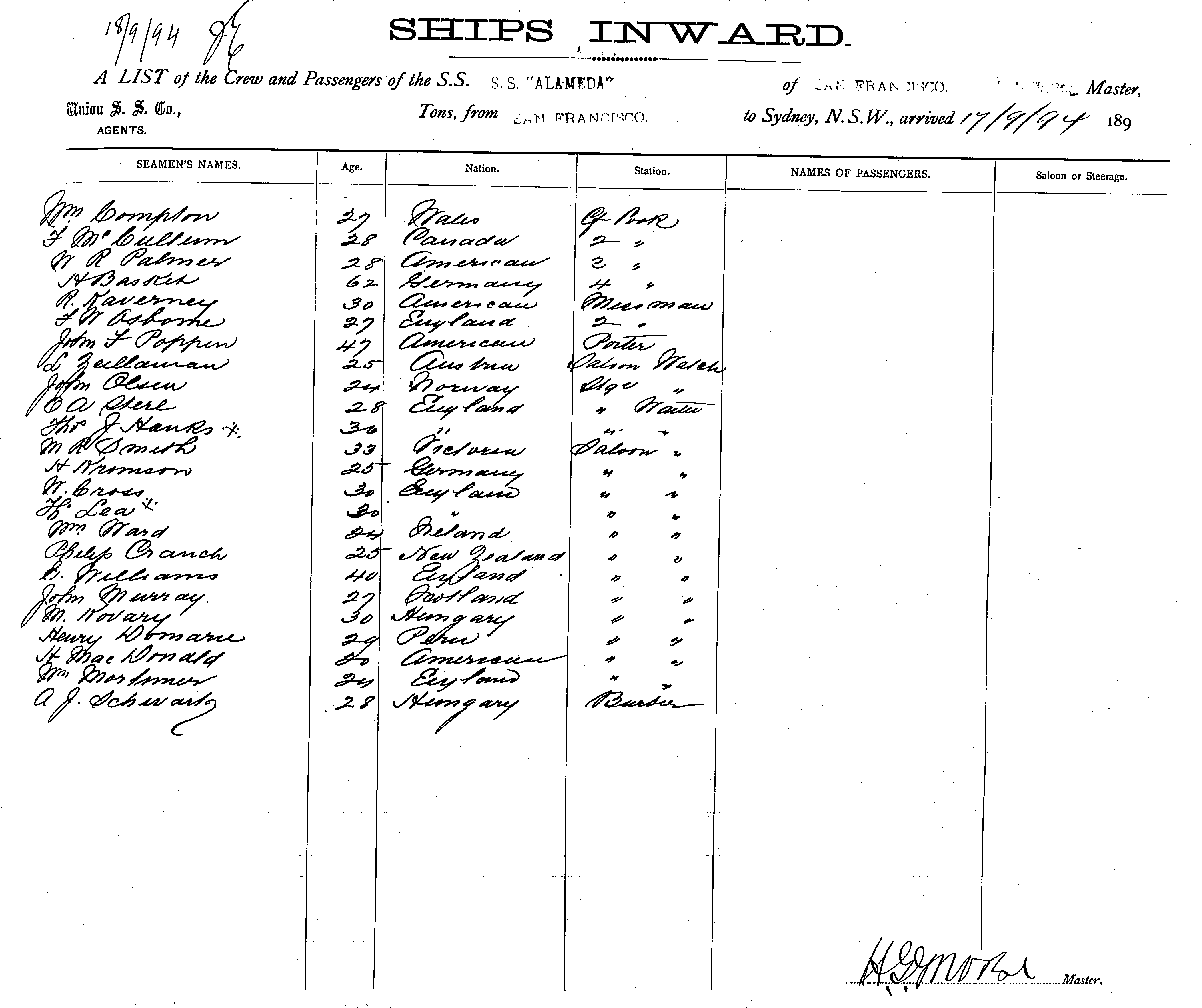 18/9/94
SHIPS INWARD.
A LIST of the Crew and Passengers of the S.S. S.S. "ALAMEDA" of SAN FRANCISCO. Master,
Union S. S. Co., AGENTS. Tons, from SAN FRANCISCO. to Sydney, N.S.W., arrived 17/9/94 189
SEAMEN'S NAMES. Age. Nation. Station. NAMES OF PASSENGERS. Saloon or Steerage.
Wm Compton 27 Wales Cf Cook
F McCullum 28 Canada 2 "
W R Palmer 28 American 3 "
H Basket 62 Germany 4 "
R. Kaverney 30 American Messman
F W Osborne 27 England 2 "
John F Poppin 47 American Porter
L Zeillaman 25 Austria Saloon Watch
John Olsen 24 Norway Stge "
C A Stere 28 England " Waiter
Thos J Hanks x. 36 " " "
M R Smith 33 Victoria Saloon "
H Kromson 25 Germany " "
W. Cross 30 England " "
H Lea x 30 " " "
Wm Ward 24 Ireland " "
Philip Cranch 25 New Zealand " "
B. Williams 40 England " "
John Murray. 27 Scotland " "
M. Kovary 30 Hungary " "
Henry Domarie 29 Peru " "
H MacDonald American " "
Wm Mortimer England " "
A J. Schwartz 28 Hungary Barber
H G Morse Master.